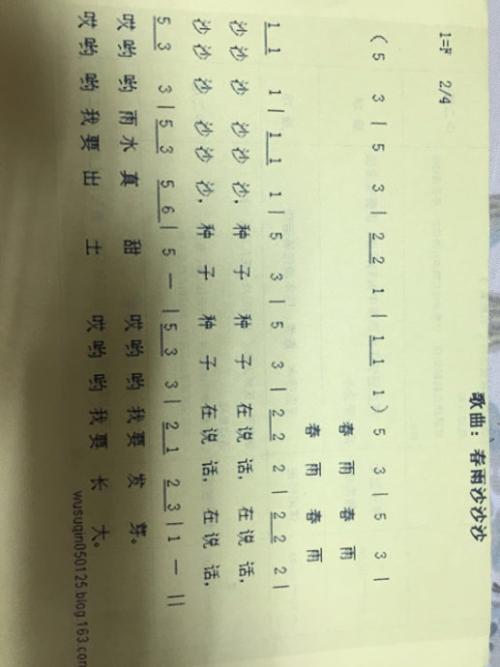 歌曲：春雨沙沙沙
1=F 2/4
(5 3 | 5 3 | 2 2 1 | 1 1 1) 5 3 | 5 3 |
春 雨 春 雨
春 雨 春 雨
1 1 1 | 1 1 1 | 5 3 | 5 3 | 2 2 2 | 2 2 2 |
沙沙 沙 沙沙 沙, 种 子 种 子 在说 话, 在说 话,
沙沙 沙 沙沙 沙, 种 子 种 子 在说 话, 在说 话,
5 3 3 | 5 3 5 6 | 5 — | 5 3 3 | 2 1 2 3 | 1 — ||
哎哟 哟 雨水 真 甜 哎哟 哟 我要 发 芽。
哎哟 哟 我要 出 土 哎哟 哟 我要 长 大。
wusuqin050125.blog.163.com